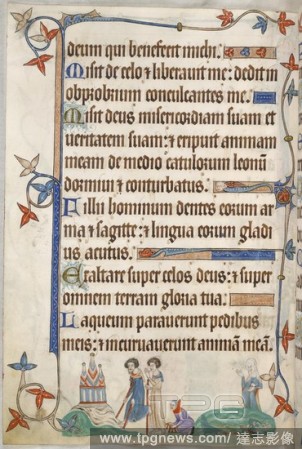 deum qui benefecit michi.
Misit de celo ⁊ liberauit me: dedit in
obprobrium conculcantes me.
Misit deus misericordiam suam et
ueritatem suam: ⁊ eripuit animam
meam de medio catulorum leonū
dormiui ⁊ conturbatus.
Filii hominum dentes eorum ar
ma ⁊ sagitte: ⁊ lingua eorum gladi
us acutus.
Exaltare super celos deus: ⁊ super
omnem terram gloria tua.
Laqueum parauerunt pedibus
meis: ⁊ incuruauerunt animā meā.
TPG
www.tpgnews.com / 達志影像